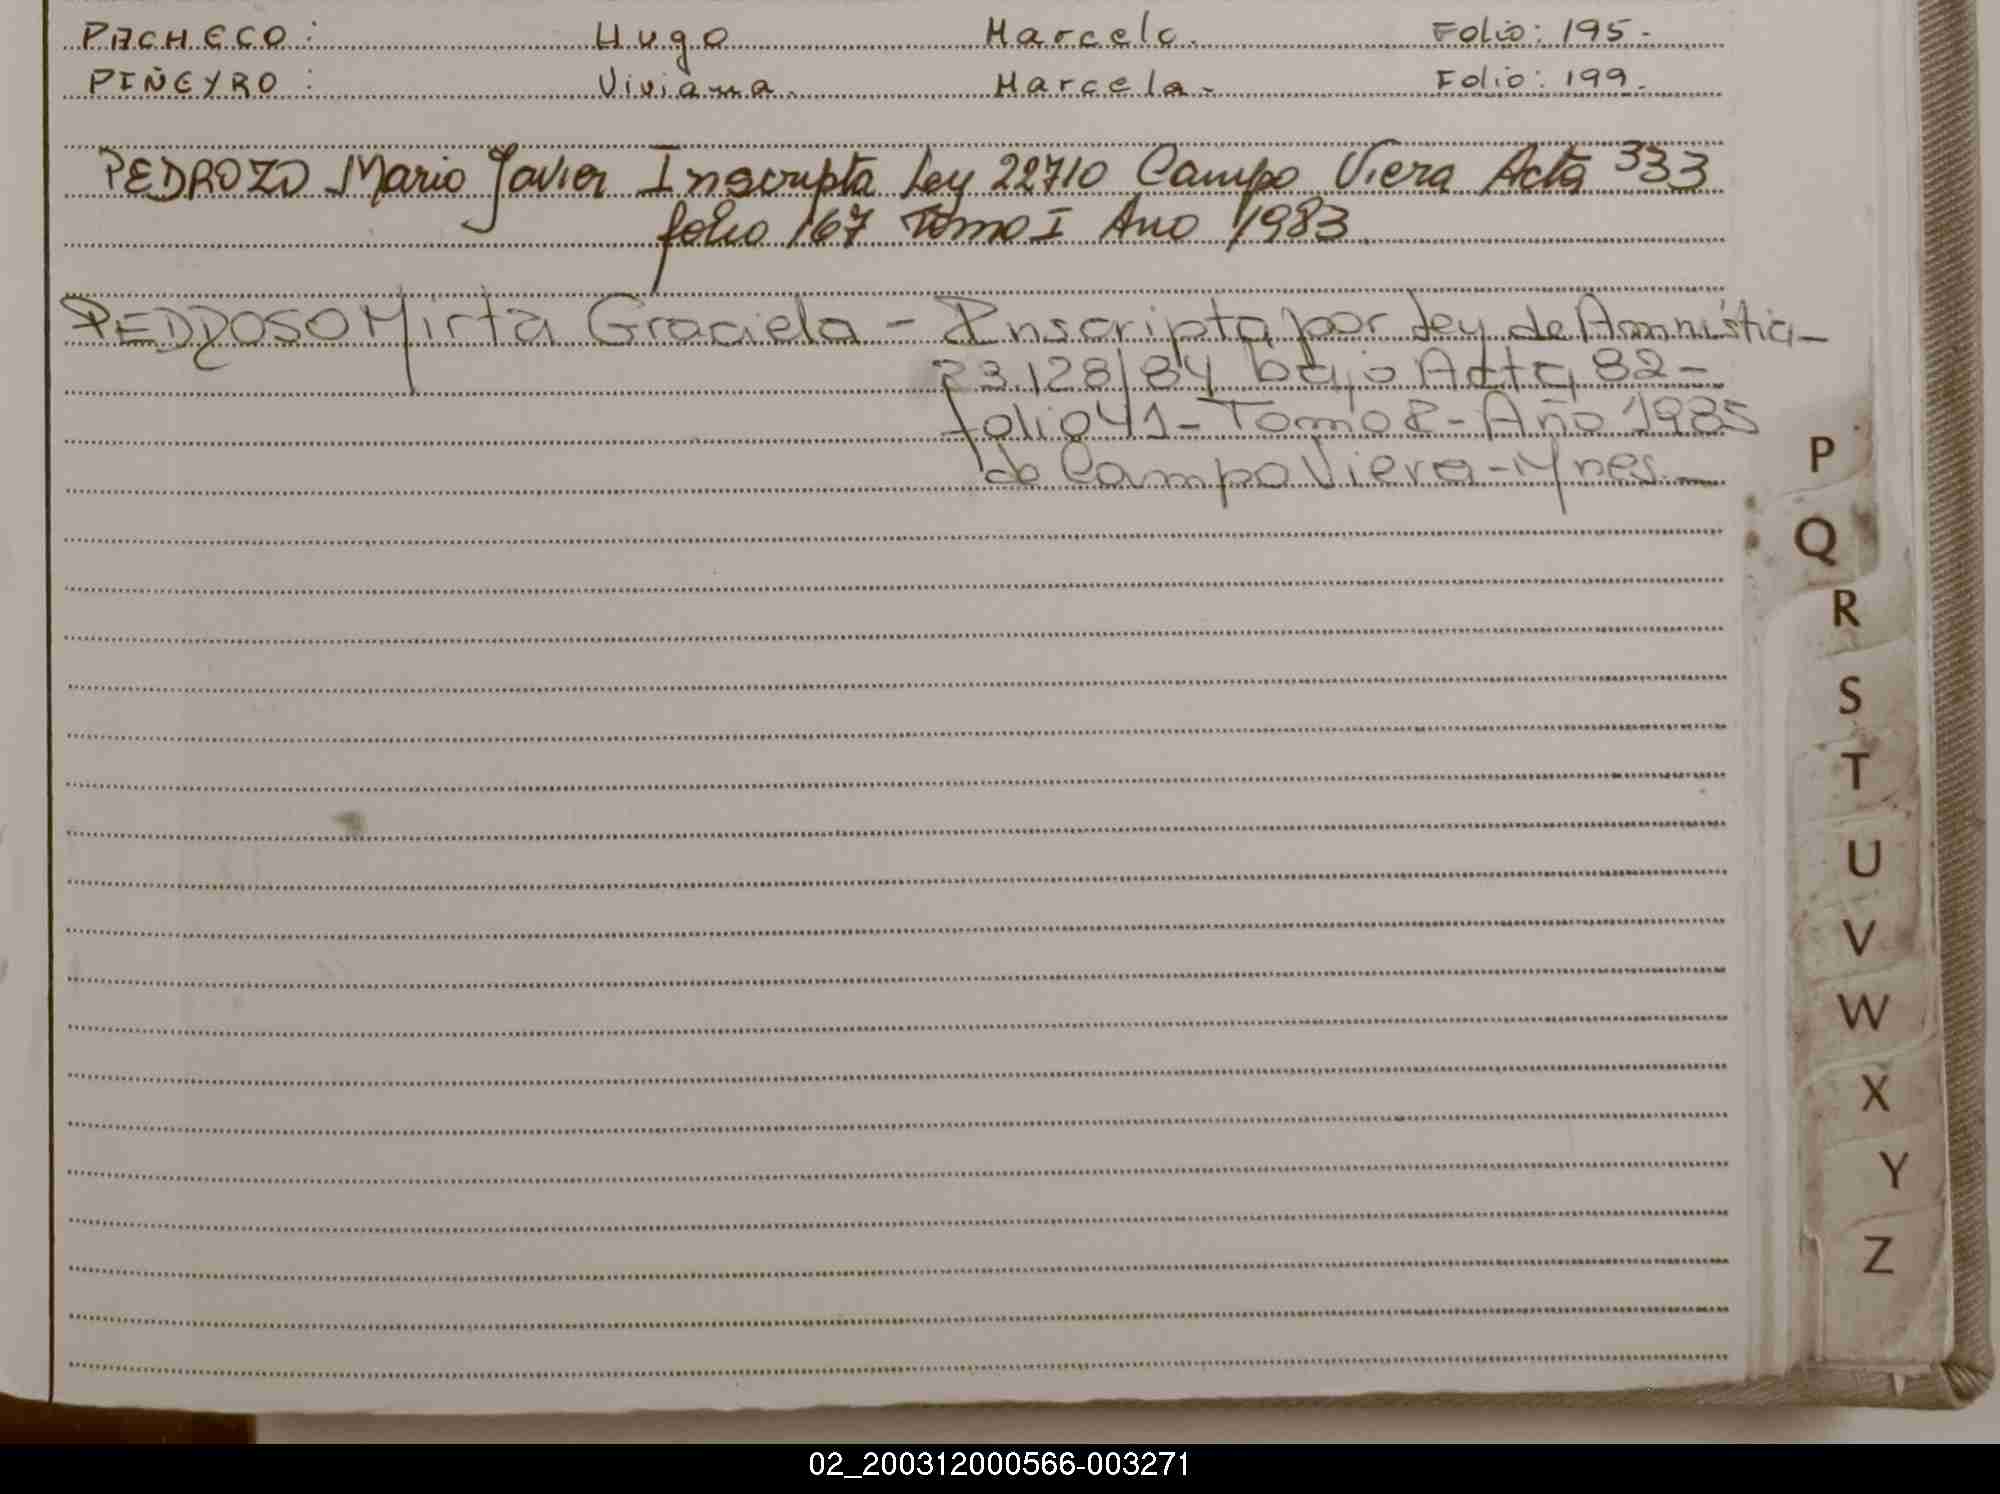 PACHECO: Hugo Marcelo. Folio: 195.-
PIÑEYRO: Viviana. Marcela.- Folio: 199.-
PEDROZO Mario Javier Inscripta Ley 22710 Campo Viera Acta 333
folio 167 Tomo I Ano 1983
PEDROSO Mirta Graciela - Inscripta por Ley de Amnistia-
23.128/84 bajo Acta 82-
folio 41- Tomo 2- Año 1985
de Campo Viera- Mnes.-
P
Q
R
S
T
U
V
W
X
Y
Z
02_200312000566-003271